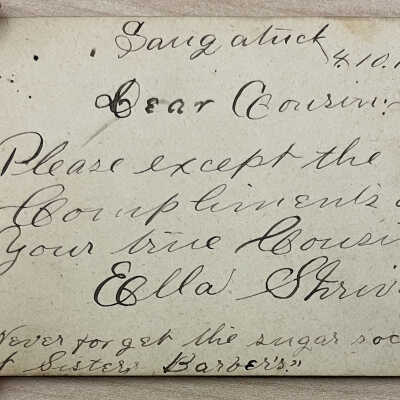 Saugatuck
4.10.
Dear Cousin:-
Please except the
Compliments
Your true Cousi
Ella Shriv
Never forget the sugar soc
Sister Barber's."